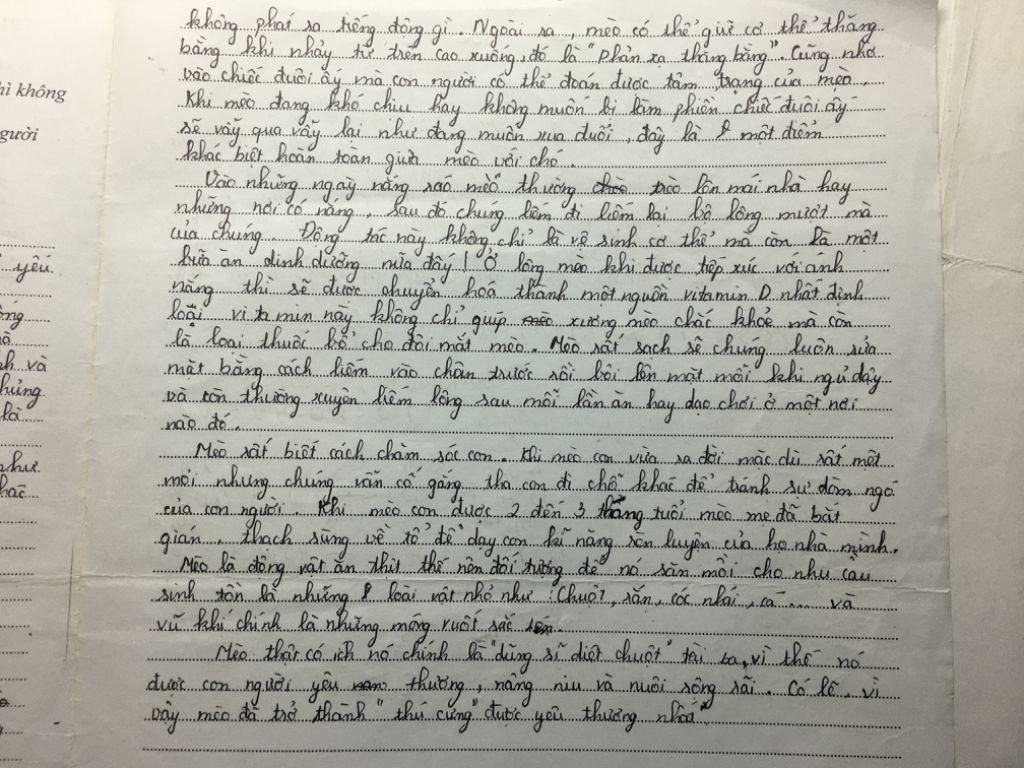 không phát ra tiếng động gì. Ngoài ra, mèo có thể giữ cơ thể thăng
bằng khi nhảy từ trên cao xuống, đó là "phản xạ thăng bằng". Cũng nhờ
vào chiếc đuôi ấy mà con người có thể đoán được tâm trạng của mèo.
hì không
Khi mèo đang khó chịu hay không muốn bị làm phiền chiếc đuôi ấy
gười
sẽ vẫy qua vẫy lại như đang muốn xua đuổi, đây là một điểm
khác biệt hoàn toàn giữa mèo với chó.
Vào những ngày nắng ráo mèo thường trèo lên mái nhà hay
những nơi có nắng, sau đó chúng liếm đi liếm lại bộ lông mượt mà
của chúng. Động tác này không chỉ là vệ sinh cơ thể mà còn là một
yếu
bữa ăn dinh dưỡng nữa đấy! Ở lông mèo khi được tiếp xúc với ánh
nắng thì sẽ được chuyển hoá thành một nguồn vitamin D nhất định
loại vitamin này không chỉ giúp xương mèo chắc khoẻ mà còn
là loại thuốc bổ cho đôi mắt mèo. Mèo rất sạch sẽ chúng luôn rửa
h và
mặt bằng cách liếm vào chân trước rồi bôi lên mặt mỗi khi ngủ dậy
hủng
và còn thường xuyên liếm lông sau mỗi lần ăn hay dạo chơi ở một nơi
là
nào đó.
Mèo rất biết cách chăm sóc con. Khi mèo con vừa ra đời mặc dù rất mệt
như
mỏi nhưng chúng vẫn cố gắng tha con đi chỗ khác để tránh sự dòm ngó
của con người. Khi mèo con được 2 đến 3 tháng tuổi mèo mẹ đã bắt
gián, thạch sùng về tổ để dạy con kĩ năng rèn luyện của họ nhà mình.
Mèo là động vật ăn thịt thế nên đối tượng để nó săn mồi cho nhu cầu
sinh tồn là những loài vật nhỏ như: Chuột, rắn, cóc nhái, cá.... và
vũ khí chính là những móng vuốt sắc
Mèo thật có ích nó chính là "dũng sĩ diệt chuột" tài ba, vì thế nó
được con người yêu thương, nâng niu và nuôi sống rãi. Có lẽ, vì
vậy mèo đã trở thành "thú cưng" được yêu thương nhất.